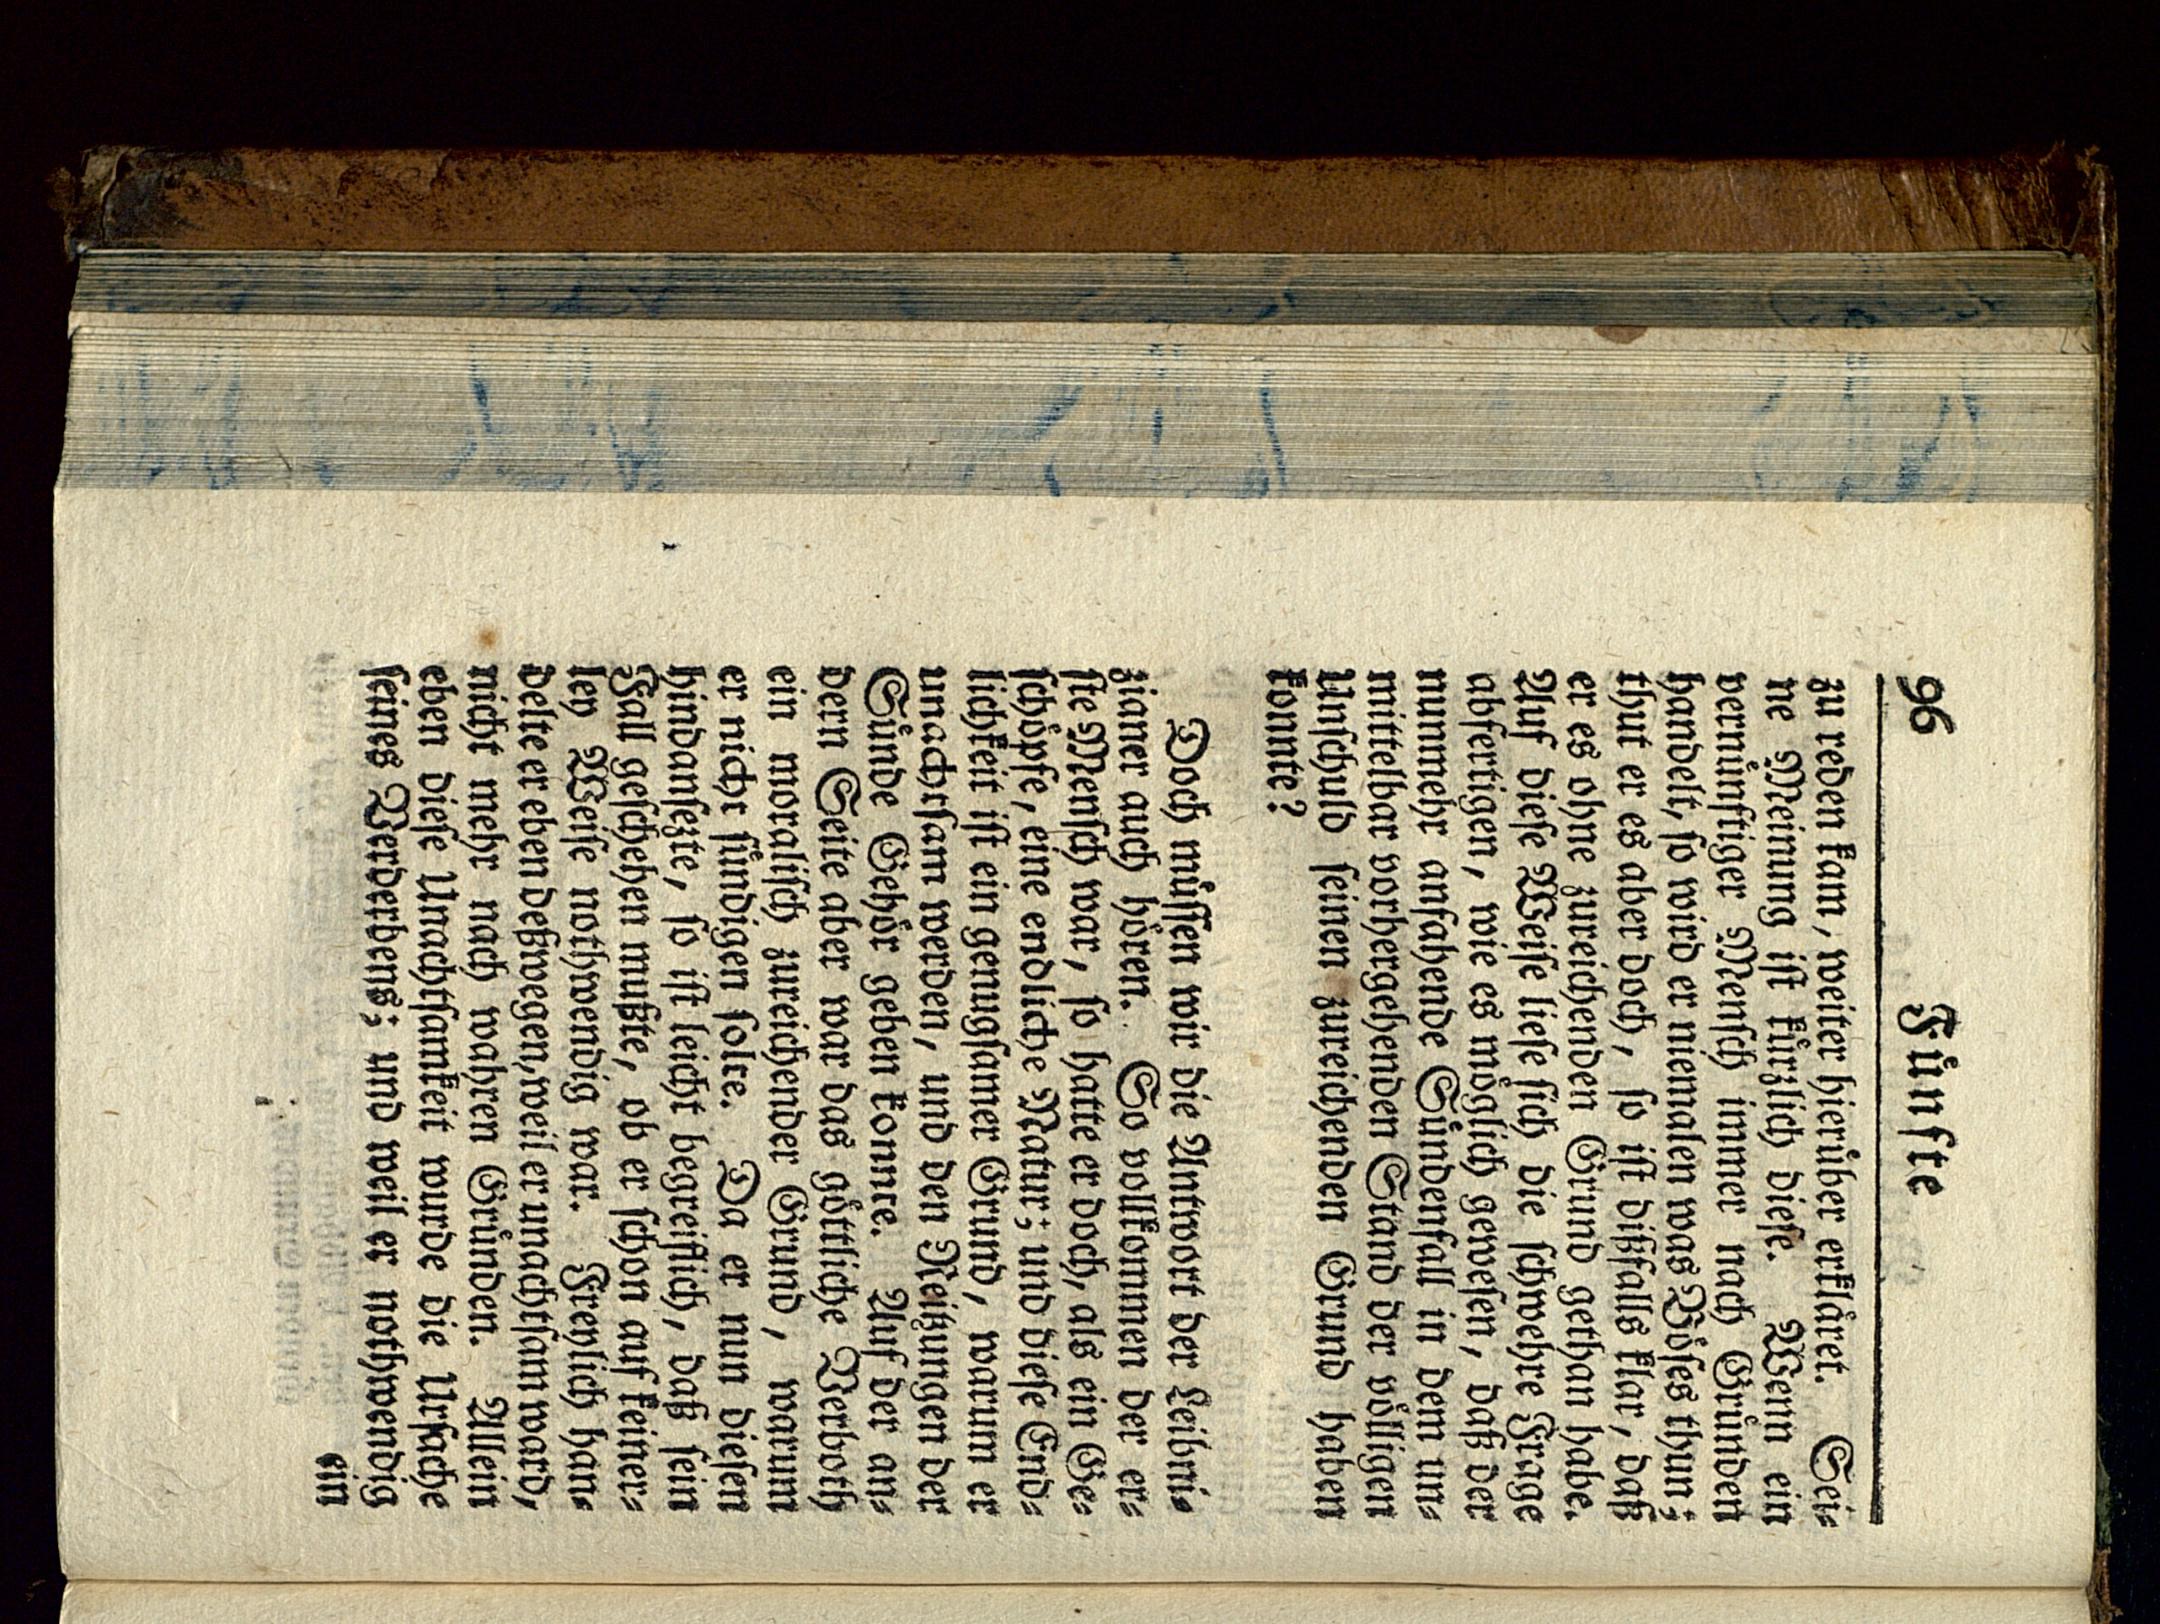 96 Fünfte
zu reden kam, weiter hierüber erkläret. Sei-
ne Meinung ist kürzlich diese. Wenn ein
vernünftiger Mensch immer nach Gründen
handelt, so wird er niemalen was Böses thun;
thut er es aber doch, so ist dißfalls klar, daß
er es ohne zureichenden Grund gethan habe.
Auf diese Weise liese sich die schwehre Frage
abfertigen, wie es möglich gewesen, daß der
nunmehr anfahende Sündenfall in dem un-
mittelbar vorhergehenden Stand der völligen
Unschuld seinen zureichenden Grund haben
konnte?
Doch müssen wir die Antwort der Leibni-
zianer auch hören. So vollkommen der er-
ste Mensch war, so hatte er doch, als ein Ge-
schöpfe, eine endliche Natur; und diese End-
lichkeit ist ein genugsamer Grund, warum er
unachtsam werden, und den Reitzungen der
Sünde Gehör geben konnte. Auf der an-
dern Seite aber war das göttliche Verboth
ein moralisch zureichender Grund, warum
er nicht sündigen solte. Da er nun diesen
hindansezte, so ist leicht begreiflich, daß sein
Fall geschehen mußte, ob er schon auf keiner-
ley Weise nothwendig war. Freylich han-
delte er eben deßwegen, weil er unachtsam ward,
nicht mehr nach wahren Gründen. Allein
eben diese Unachtsamkeit wurde die Ursache
seines Verderbens; und weil er nothwendig
ein